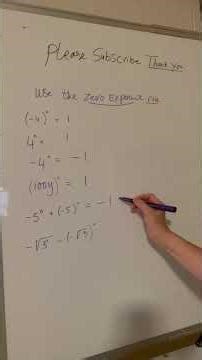 Please Subscribe Thank you
Use the Zero Exponent
(-4)° = 1
4° = 1
-4° = -1
(100y)° = 1
-5° + (-5)° = -1
-√5 - (-√5)°